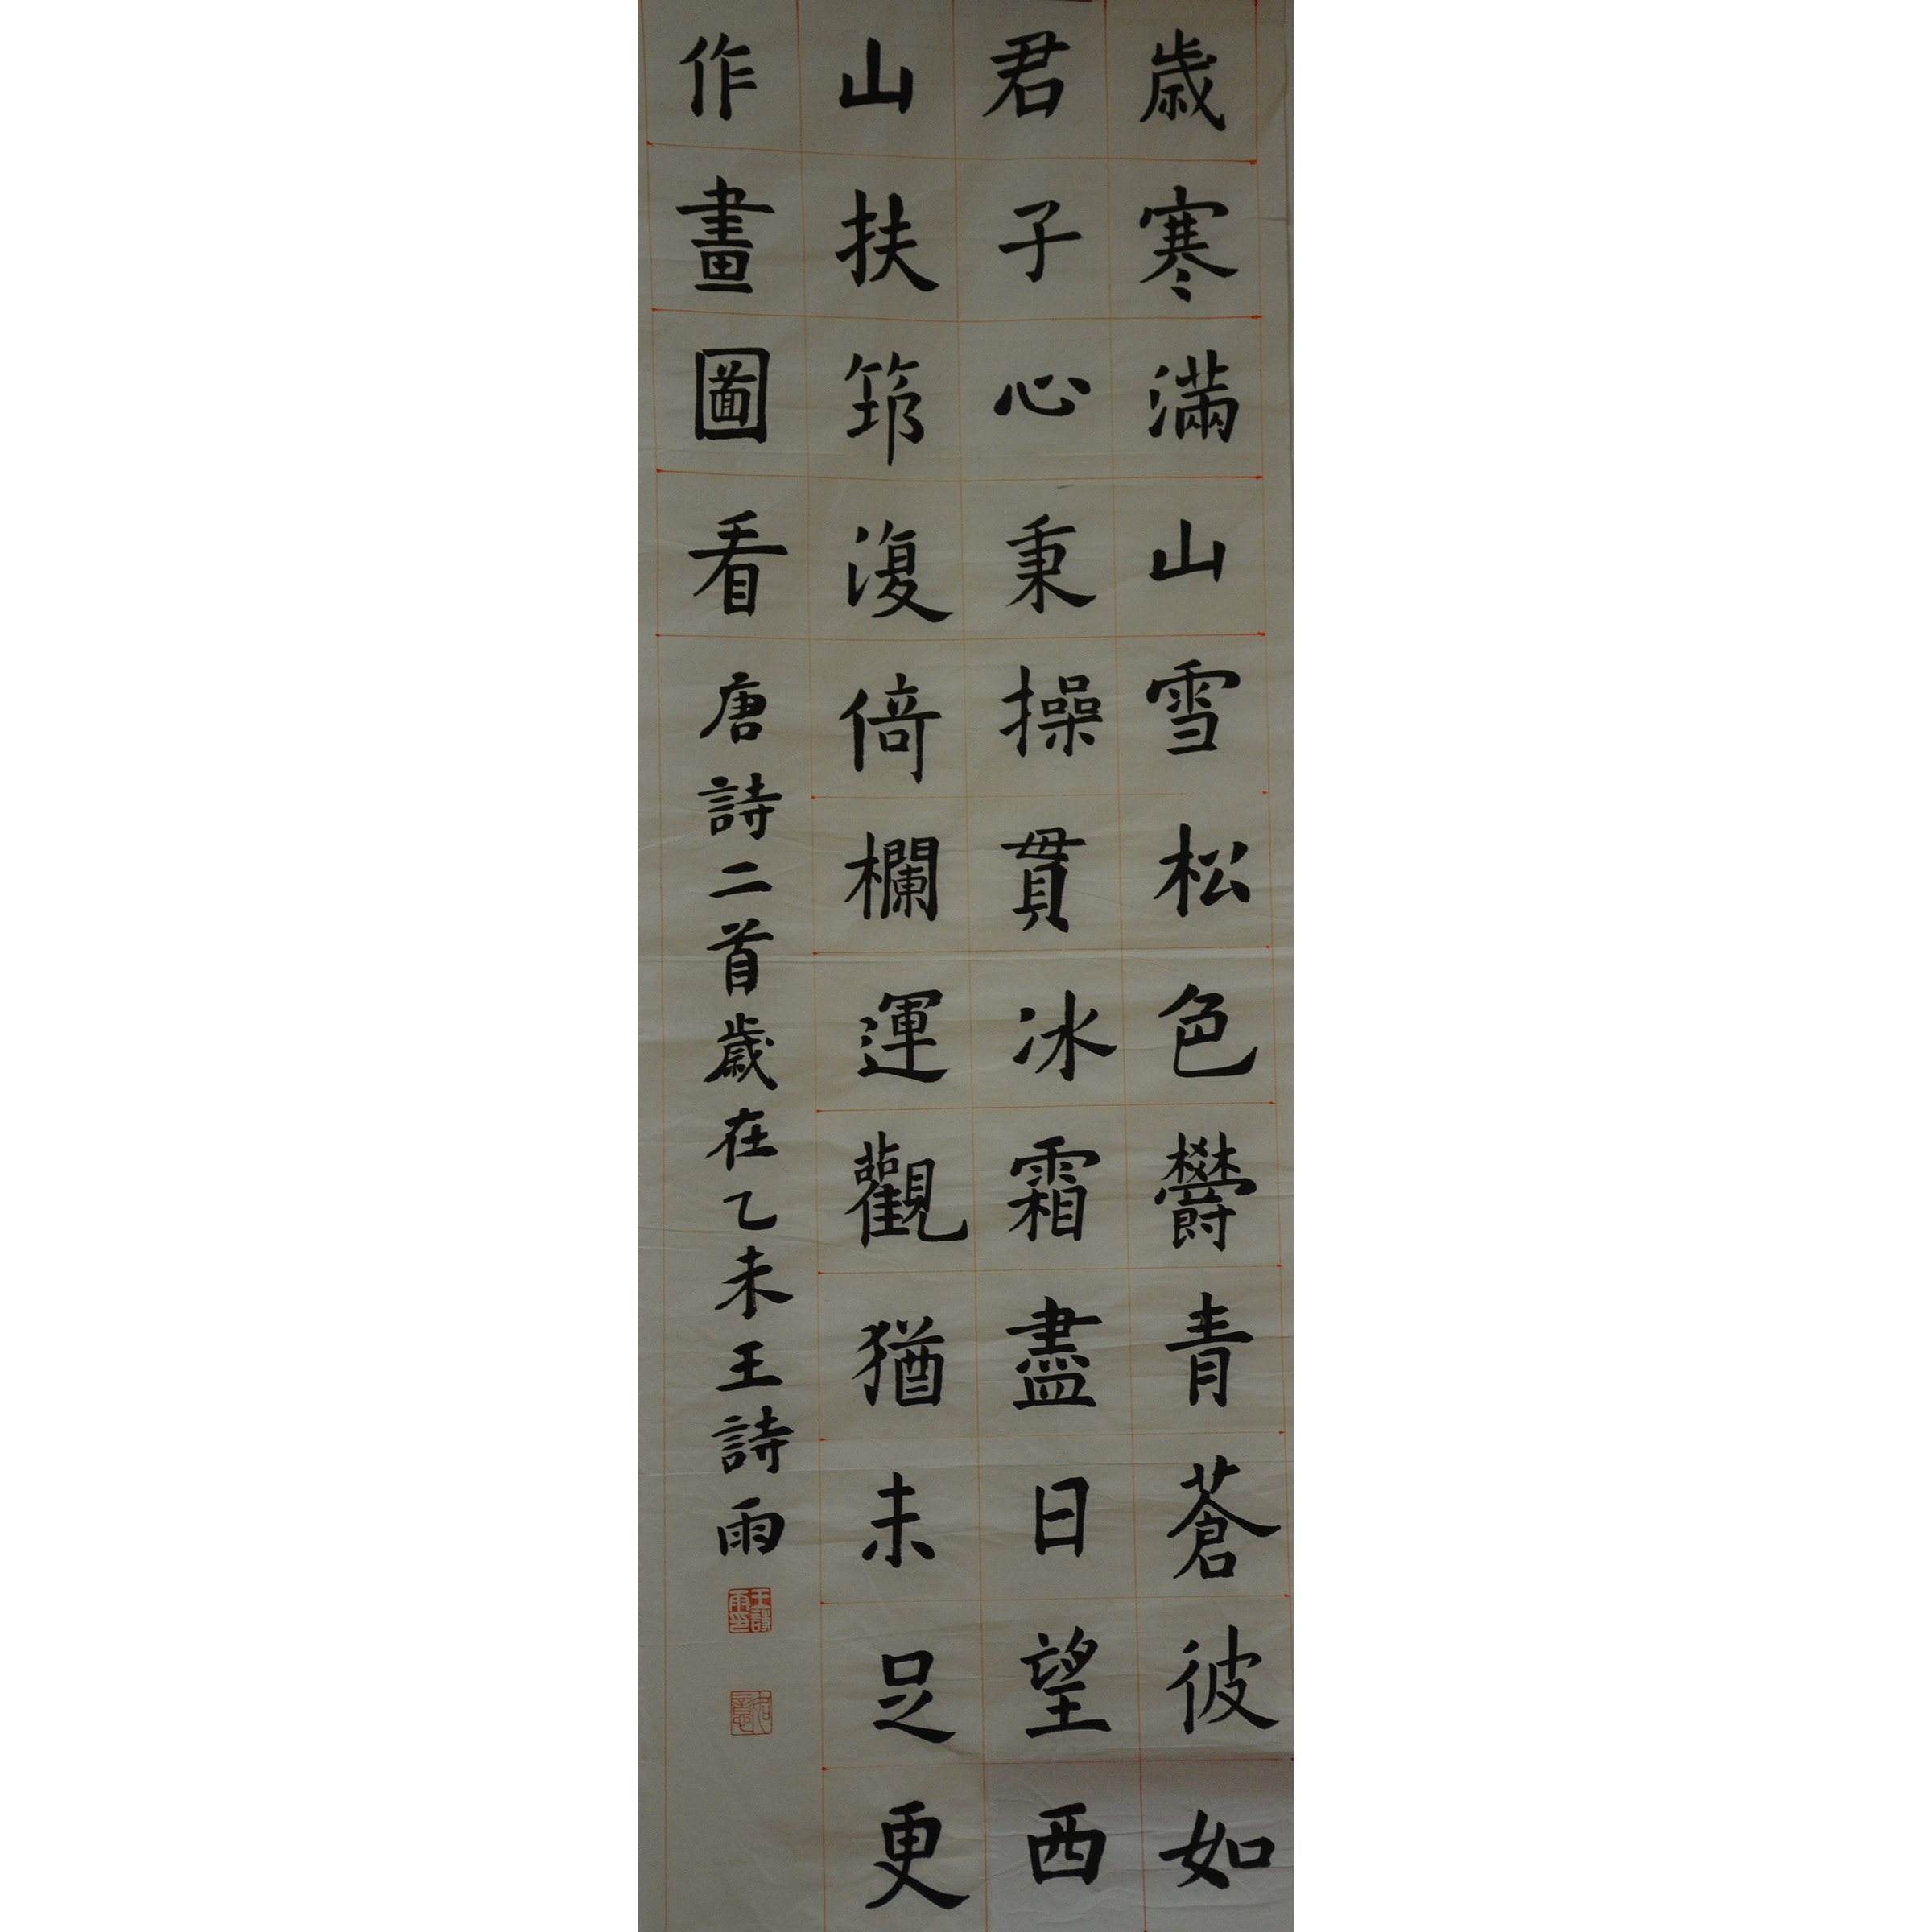 歲寒滿山雪松色欝青蒼彼如
君子心秉操貫冰霜盡日望西
山扶筇復倚欄運觀猶未足更
作畫圖看唐詩二首歲在乙未王詩雨
王詩雨印